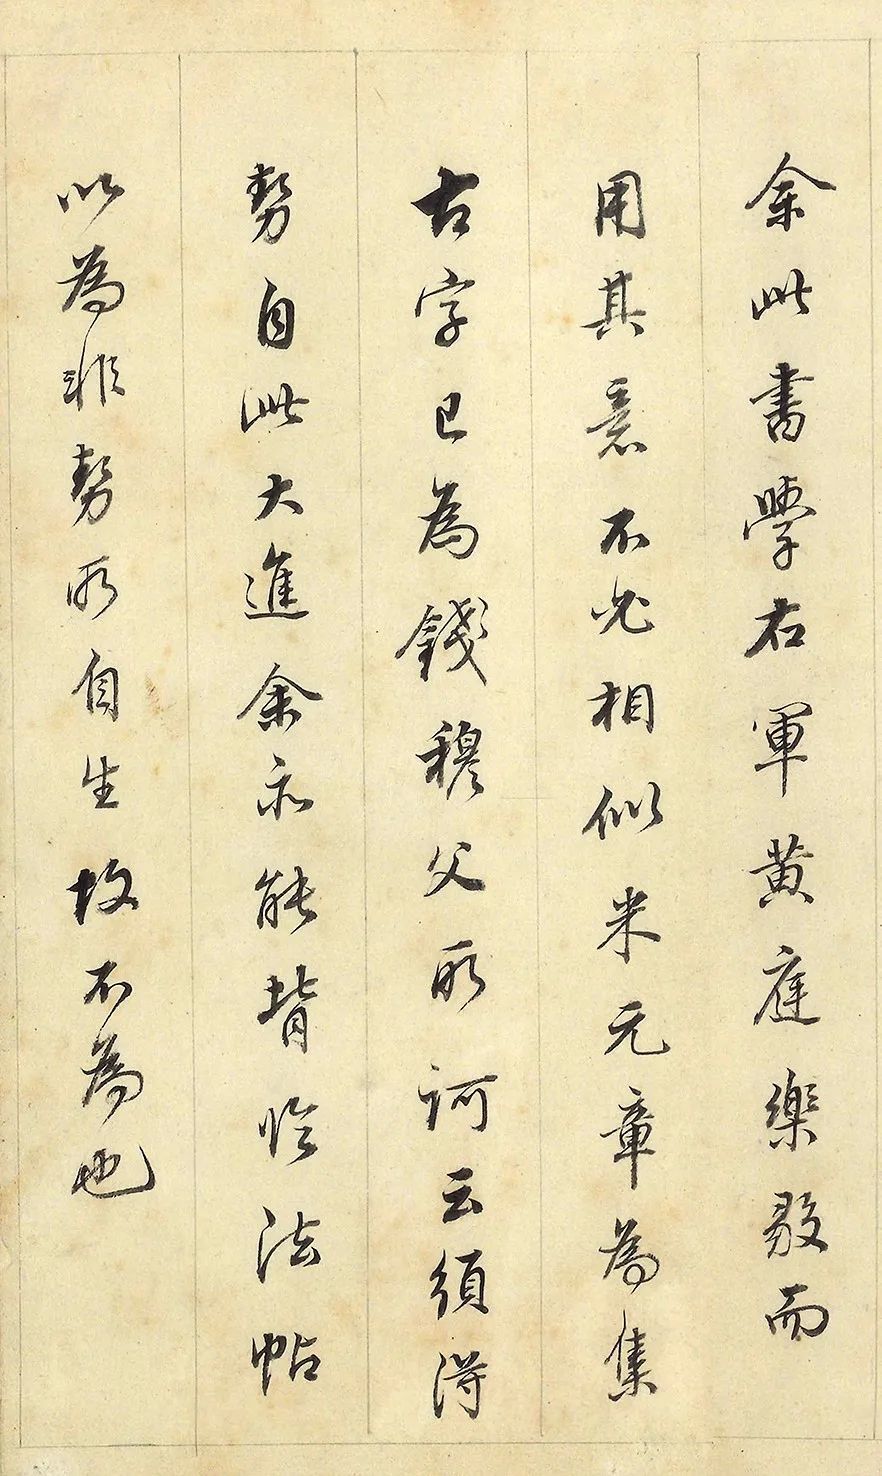 余此書學右軍黄庭樂毅而
用其意不必相似米元章為集
古字已為錢穆父所訶云須得
勢自此大進余亦能背臨法帖
以為非勢所自生故不為也